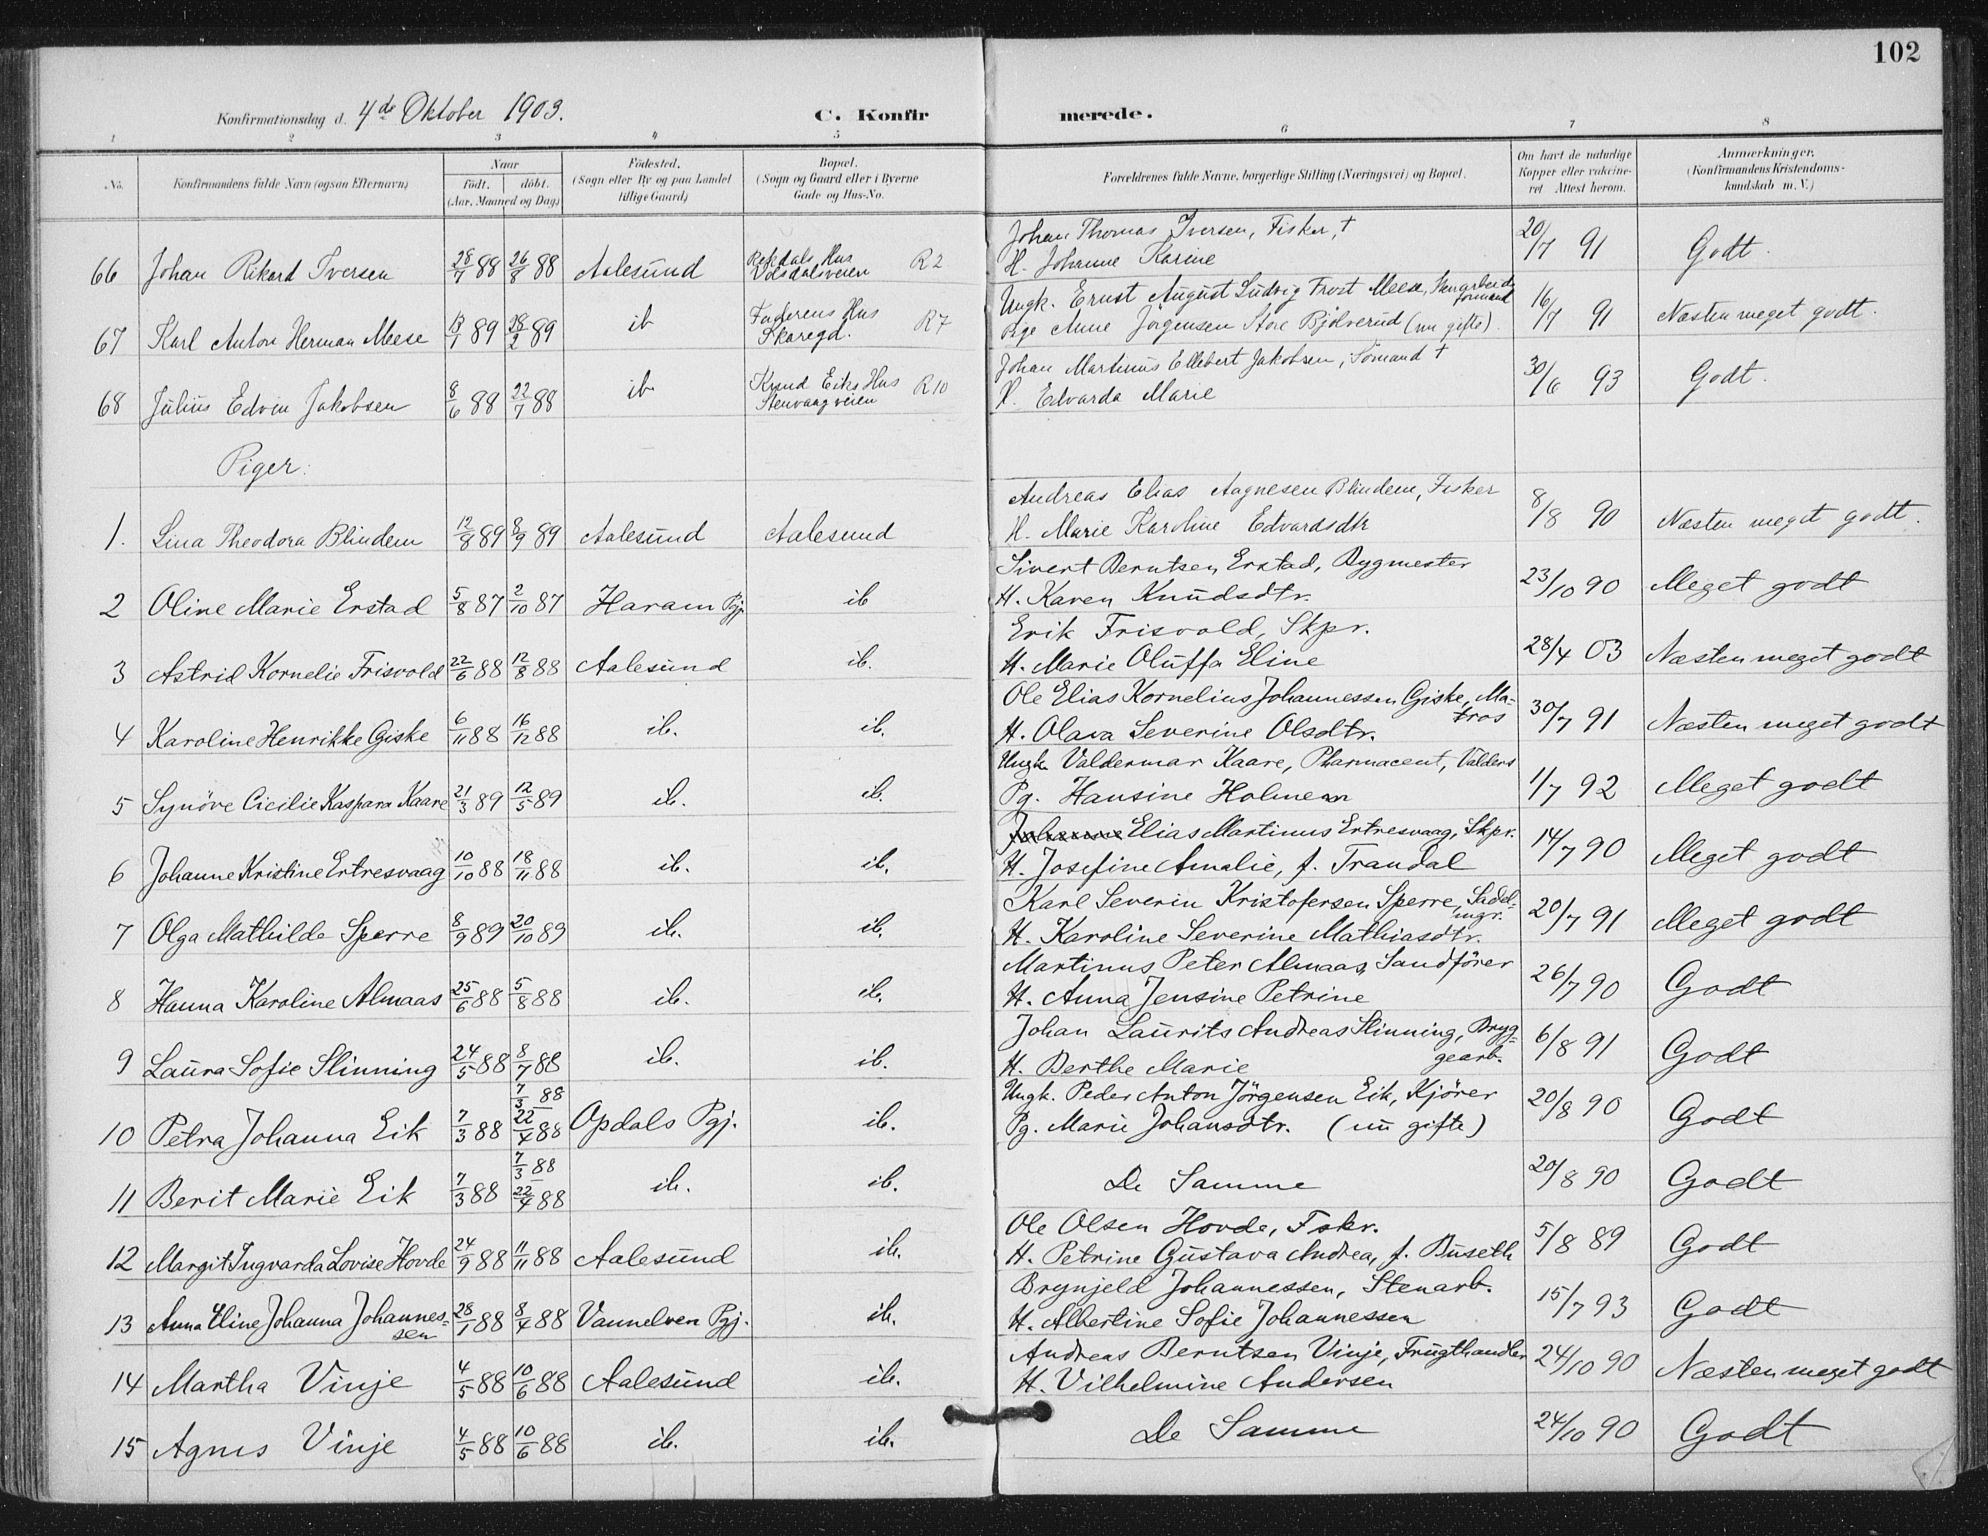 102
Konfirmationsdag d. 4de Oktober 1903. C. Konfirmerede.
1 2 3 4 5 6 7 8
No. Konfirmandens fulde Navn (ogsaa Efternavn) Naar födt. döbt. (Aar, Maaned og Dag) Födested. (Sogn eller By og paa Landet tillige Gaard) Bopæl. (Sogn og Gaard eller i Byerne Gade og Hus-No. Forældrenes fulde Navne, borgerlige Stilling (Næringsvei) og Bopæl. Om havt de naturlige Kopper eller vakcineret Attest herom. Anmærkninger. (Konfirmandens Kristendomskundskab m. V.)
Johan Thomas Iversen, Fisker, †
66 Johan Rikard Iversen 28/7 88 26/8 88 Aalesund Rekdals Hus Volsdalsveien R 2 H. Johanne Karine 20/7 91 Godt.
Ungk. Ernst August Ludvig Frost Meese, formand
67 Karl Anton Herman Meese 13/1 89 28/2 89 ib Faderens Hus Skaregd. R 7 Pige Anne Jørgensen Store Bjölverud (nu gifte). 16/7 91 Næsten meget godt.
Johan Martinus Ellebert Jakobsen, Sömand †
68 Julius Edvin Jakobsen 8/6 88 22/7 88 ib Knud Eiks Hus Stenvaagveien R 10 H. Edvarda Marie 30/6 93 Godt.
Piger:
Andreas Elias Aagnesen Blindem, Fisker
1. Lina Theodora Blindem 12/8 89 8/9 89 Aalesund Aalesund H. Marie Karoline Edvardsdtr 8/8 90 Næsten meget godt.
Sivert Berntsen Erstad, Bygmester
2 Oline Marie Erstad 5/8 87 2/10 87 Haram Pgj. ib H. Karen Knudsdtr. 23/10 90 Meget godt
Erik Frisvold, Skpr.
3 Astrid Kornelie Frisvold 22/6 88 12/8 88 Aalesund ib. H. Marie Oluffa Eline 28/4 03 Næsten meget godt
Ole Elias Kornelius Johannessen Giske, Matros
4 Karoline Henrikke Giske 6/11 88 16/12 88 ib. ib. H. Olava Severine Olsdtr. 30/7 91 Næsten meget godt
Ungk. Valdermar Kaare, Pharmacent, Valders
5 Synöve Cicilie Kaspara Kaare 21/3 89 12/5 89 ib. ib. Pg. Hansine Holmen 1/7 92 Meget godt
Elias Martinus Ertresvaag, Skpr.
6 Johanne Kristine Ertresvaag 10/10 88 18/11 88 ib. ib. H. Josefine Amalie, f. Trandal 14/7 90 Meget godt
Karl Severin Kristofersen Sperre, Sadelmgr.
7 Olga Mathilde Sperre 8/9 89 20/10 89 ib. ib. H. Karoline Severine Mathiasdtr. 20/7 91 Meget godt
Martinus Peter Almaas, Sandförer
8 Hanna Karoline Almaas 25/6 88 5/8 88 ib. ib. H. Anna Jensine Petrine 26/7 90 Godt
Johan Laurits Andreas Slinning, Bryggearb.
9 Laura Sofie Slinning 24/5 88 8/7 88 ib. ib. H. Berthe Marie 6/8 91 Godt
7/3 88 Ungk. Peder Anton Jörgensen Eik, Kjörer
10 Petra Johanna Eik 7/3 88 22/4 88 Opdals Pgj. ib. Pg. Marie Johansdtr. (nu gifte) 20/8 90 Godt
7/3 88
11 Berit Marie Eik 7/3 88 22/4 88 ib. ib. De Samme 20/8 90 Godt
Ole Olsen Hovde, Fskr.
12 Margit Ingvarda Lovise Hovde 24/9 88 11/11 88 Aalesund ib. H. Petrine Gustava Andrea, f. Buseth 5/8 89 Godt
Brynjeld Johannessen, Stenarb.
13 Anna Eline Johanna Johannessen 28/1 88 8/4 88 Vannelven Pgj. ib. H. Albertine Sofie Johannessen 15/7 93 Godt
Andreas Berntsen Vinje, Frugthandler
14 Martha Vinje 4/5 88 10/6 88 Aalesund ib. H. Vilhelmine Andersen 24/10 90 Næsten meget godt
15 Agnes Vinje 4/5 88 10/6 88 ib. ib. De Samme 24/10 90 Godt